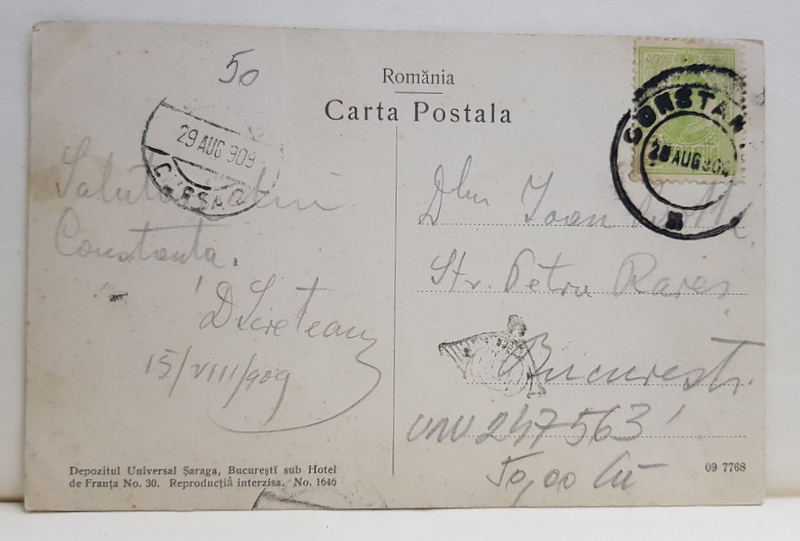 50
România
Carta Postala
CONSTAN
28 AUG 909
29 AUG 909
CURSA
Salutari din
Constanta.
15/VIII/909
Dlui Ioan
Str. Petru Rares
Bucuresti.
UNU 247563
50,00 lei
Depozitul Universal Șaraga, Bucureștĭ sub Hotel
de Franța No. 30. Reproducția interzisa. No. 1646
09 7768